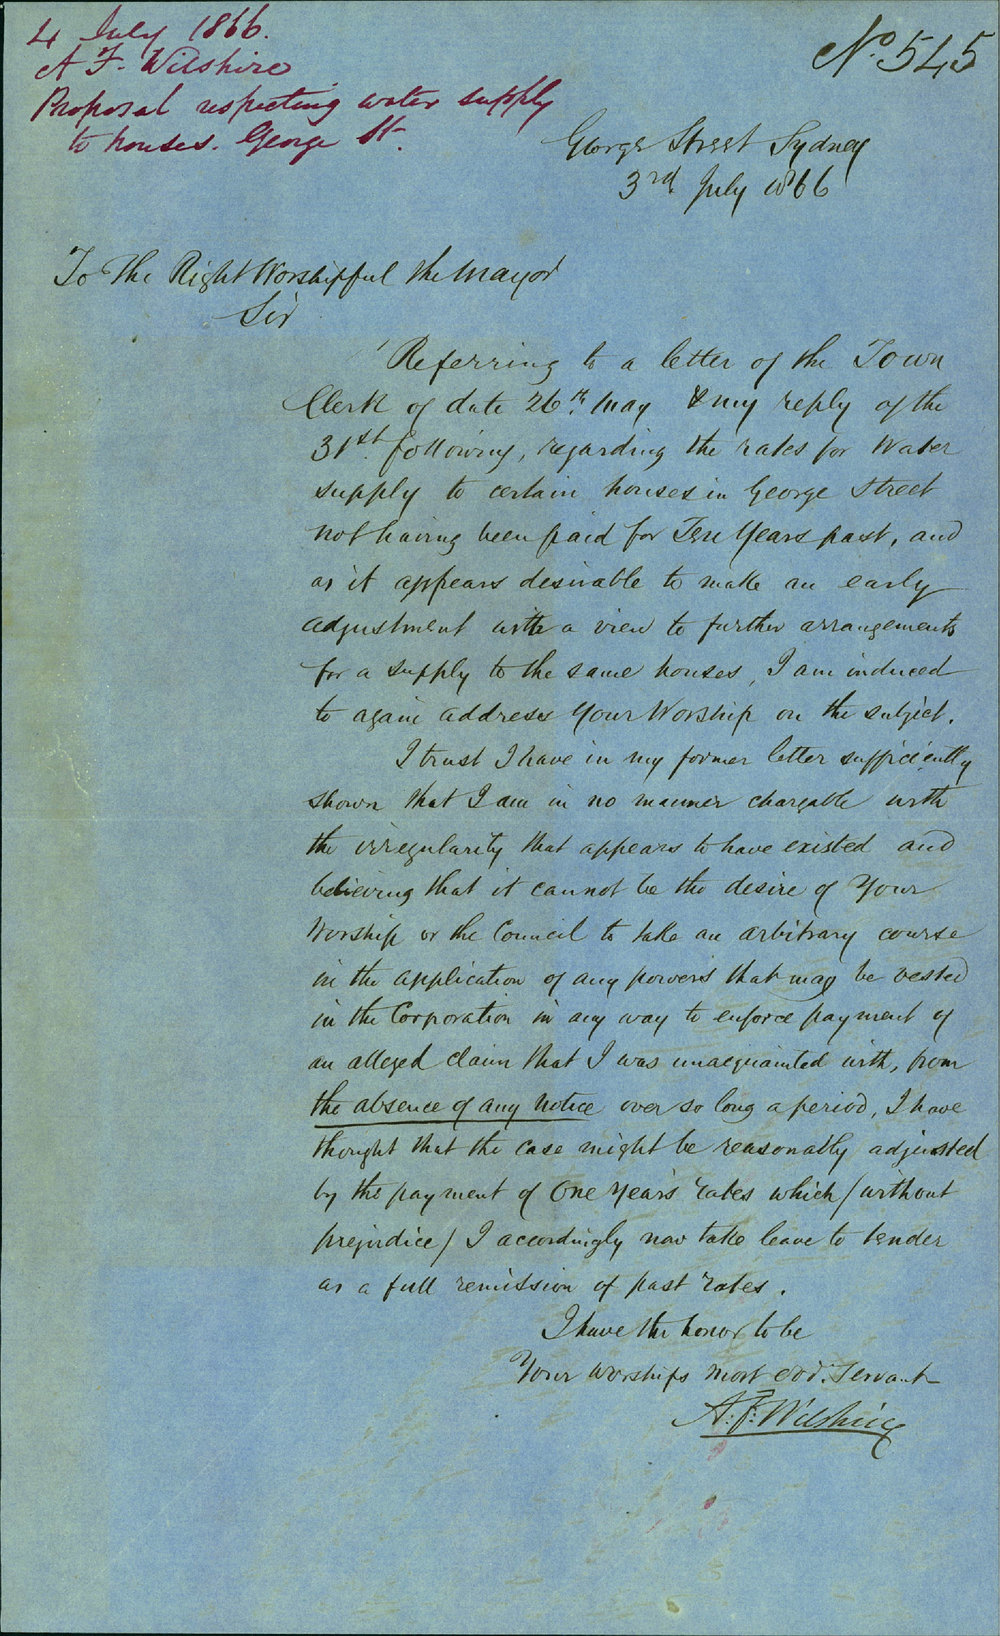 4 July 1866.
A F. Wilshire
Proposal respecting water supply
to houses. George St.
No. 545
George Street Sydney
3rd July 1866
To The Right Worshipful the Mayor
Sir
Referring to a letter of the Town
Clerk of date 26th. May & my reply of the
31st. following, regarding the rates for Water
supply to certain houses in George Street
not having been paid for Ten Years past, and
as it appears desirable to make an early
adjustment with a view to further arrangements
for a supply to the same houses, I am induced
to again address Your Worship on the subject.
I trust I have in my former letter sufficiently
shown that I am in no manner chargable with
the irregularity that appears to have existed and
believing that it cannot be the desire of Your
Worship or the Council to take an arbitrary course
in the application of any powers that may be vested
in the Corporation in any way to enforce payment of
an alleged claim that I was unacquainted with, from
the absence of any notice over so long a period, I have
thought that the case might be reasonably adjusted
by the payment of One Years rates which (without
prejudice) I accordingly now take leave to tender
as a full remission of past rates.
I have the honor to be
Your Worships most obd. Servant
A. F. Wilshire